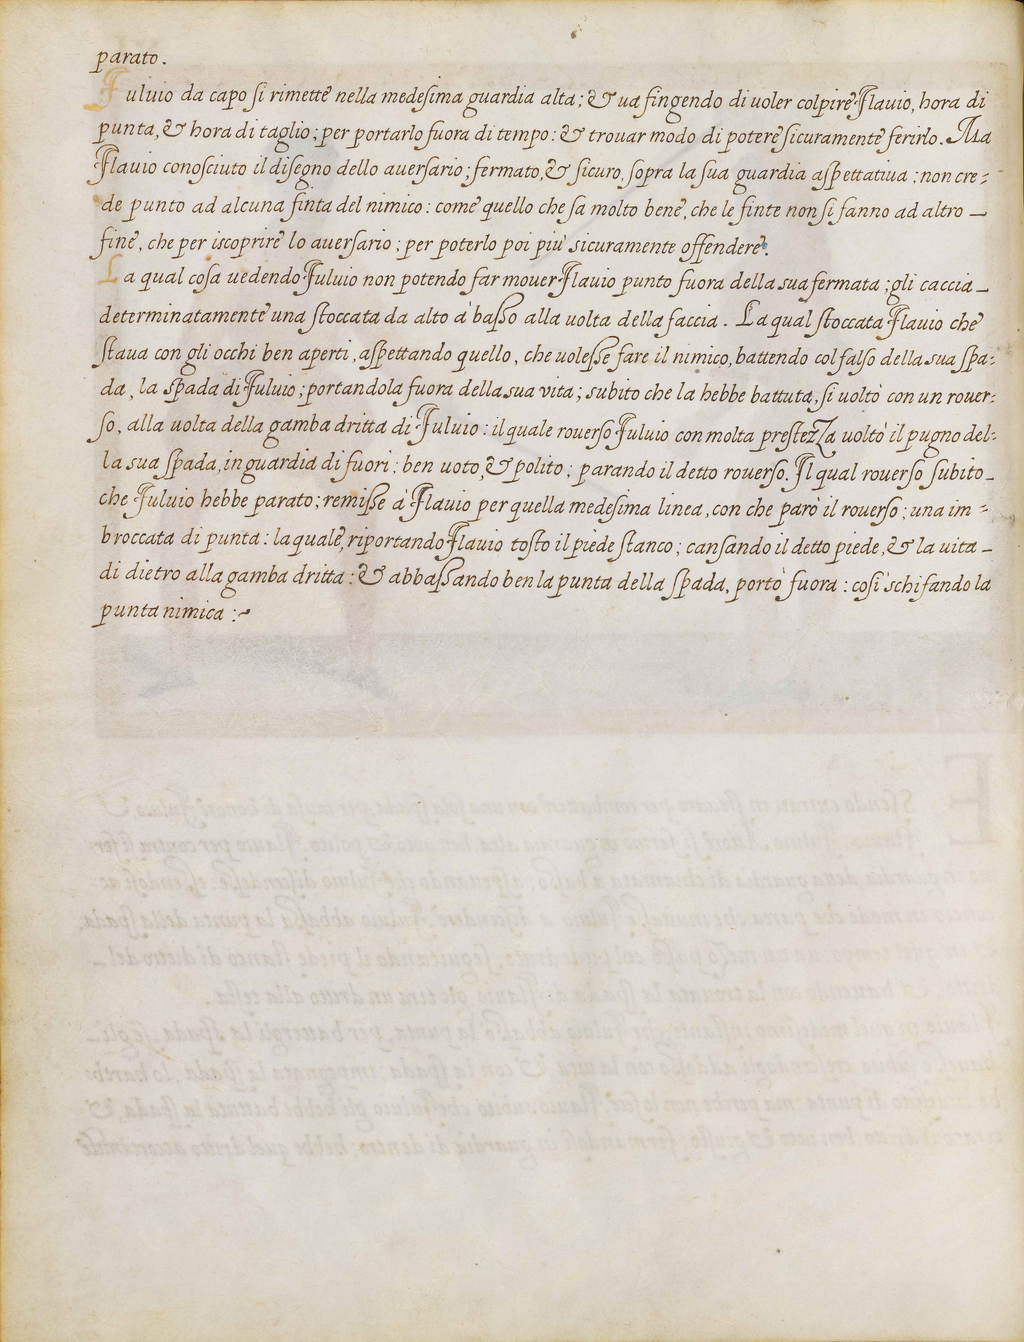 parato.
Fuluio da capo si rimette nella medesima guardia alta; & ua fingendo di uoler colpire Flauio, hora di
punta, & hora di taglio; per portarlo fuora di tempo: & trouar modo di potere sicuramente ferirlo. Ma
Flauio conosciuto il disegno dello auersario; fermato, & sicuro, sopra la sua guardia aspettatiua; non cre=
de punto ad alcuna finta del nimico: come quello che sa molto bene, che le finte non si fanno ad altro
fine, che per iscoprire lo auersario; per poterlo poi più sicuramente offendere.
La qual cosa uedendo Fuluio non potendo far mouer Flauio punto fuora della sua fermata; gli caccia
determinatamente una stoccata da alto à basso alla uolta della faccia. La qual stoccata Flauio che
staua con gli occhi ben aperti, aspettando quello, che uolesse fare il nimico, battendo col falso della sua spa=
da, la spada di Fuluio; portandola fuora della sua vita; subito che la hebbe battuta, si uoltò con un rouer=
so, alla uolta della gamba dritta di Fuluio: il quale rouerso Fuluio con molta prestezza uoltò il pugno del=
la sua spada, in guardia di fuori; ben uoto, & polito; parando il detto rouerso. Il qual rouerso subito
che Fuluio hebbe parato; remisse à Flauio per quella medesima linea, con che parò il rouerso; una im=
broccata di punta: la quale, riportando Flauio tosto il piede stanco; cansando il detto piede, & la uita
di dietro alla gamba dritta: & abbassando ben la punta della spada, portò fuora: così schifando la
punta nimica:~